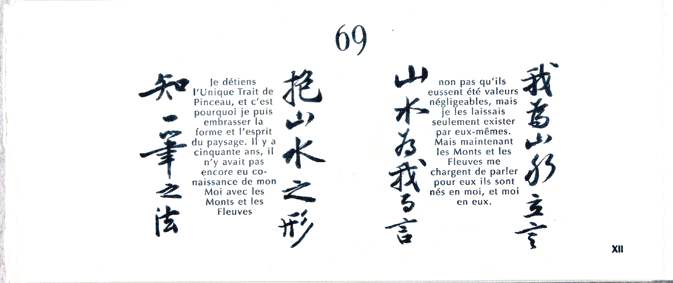 69
知一筆之法
Je détiens
l'Unique Trait de
Pinceau, et c'est
pourquoi je puis
embrasser la
forme et l'esprit
du paysage. Il y a
cinquante ans, il
n'y avait pas
encore eu co-
naissance de mon
Moi avec les
Monts et les
Fleuves
抱山水之形
山水為我而言
non pas qu'ils
eussent été valeurs
négligeables, mais
je les laissais
seulement exister
par eux-mêmes.
Mais maintenant
les Monts et les
Fleuves me
chargent de parler
pour eux ils sont
nés en moi, et moi
en eux.
我為山水立言
XII